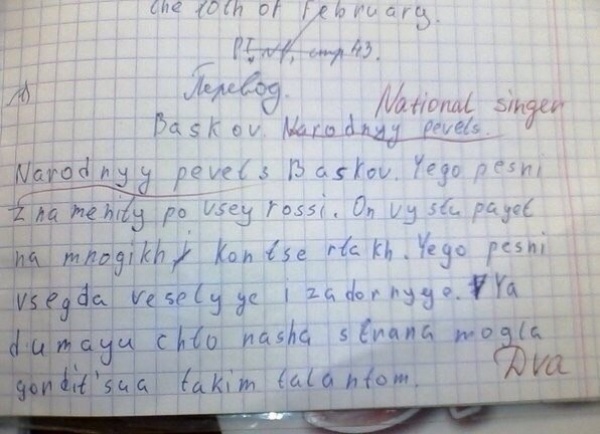 the 10th of February.
P I, №1, стр 43.
Перевод.
National singer
Baskov. Narodnyy pevels.
Narodnyy pevels Baskov. Yego pesni
znamenity po vsey rossi. On vystupayet
na mnogikh kontsertakh. Yego pesni
vsegda veselyye i zadornyye. Ya
dumayu chto nasha strana mogla
gordit'sua takim talantom.
Dva